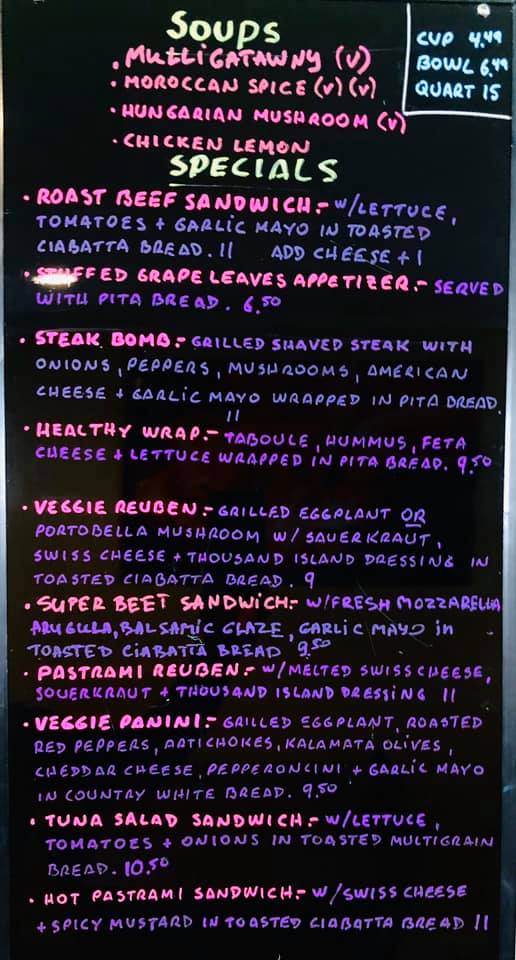 SOUPS
CUP 4.49
BOWL 6.49
QUART 15
• MULLIGATAWNY (V)
• MOROCCAN SPICE (V) (V)
• HUNGARIAN MUSHROOM (V)
• CHICKEN LEMON
SPECIALS
• ROAST BEEF SANDWICH:- W/LETTUCE,
TOMATOES + GARLIC MAYO IN TOASTED
CIABATTA BREAD. 11 ADD CHEESE + 1
• STUFFED GRAPE LEAVES APPETIZER:- SERVED
WITH PITA BREAD. 6.50
• STEAK BOMB:- GRILLED SHAVED STEAK WITH
ONIONS, PEPPERS, MUSHROOMS, AMERICAN
CHEESE + GARLIC MAYO WRAPPED IN PITA BREAD.
11
• HEALTHY WRAP:- TABOULE, HUMMUS, FETA
CHEESE + LETTUCE WRAPPED IN PITA BREAD. 9.50
• VEGGIE REUBEN:- GRILLED EGGPLANT OR
PORTOBELLA MUSHROOM W/ SAUERKRAUT,
SWISS CHEESE + THOUSAND ISLAND DRESSING IN
TOASTED CIABATTA BREAD. 9
• SUPER BEET SANDWICH:- W/FRESH MOZZARELLA
ARUGULA, BALSAMIC GLAZE, GARLIC MAYO in
TOASTED CIABATTA BREAD 9.50
• PASTRAMI REUBEN:- W/MELTED SWISS CHEESE,
SOUERKRAUT + THOUSAND ISLAND DRESSING 11
• VEGGIE PANINI:- GRILLED EGGPLANT, ROASTED
RED PEPPERS, ARTICHOKES, KALAMATA OLIVES,
CHEDDAR CHEESE, PEPPERONCINI + GARLIC MAYO
IN COUNTRY WHITE BREAD. 9.50
• TUNA SALAD SANDWICH:- W/LETTUCE,
TOMATOES + ONIONS IN TOASTED MULTIGRAIN
BREAD. 10.50
• HOT PASTRAMI SANDWICH:- W/SWISS CHEESE
+ SPICY MUSTARD IN TOASTED CIABATTA BREAD 11